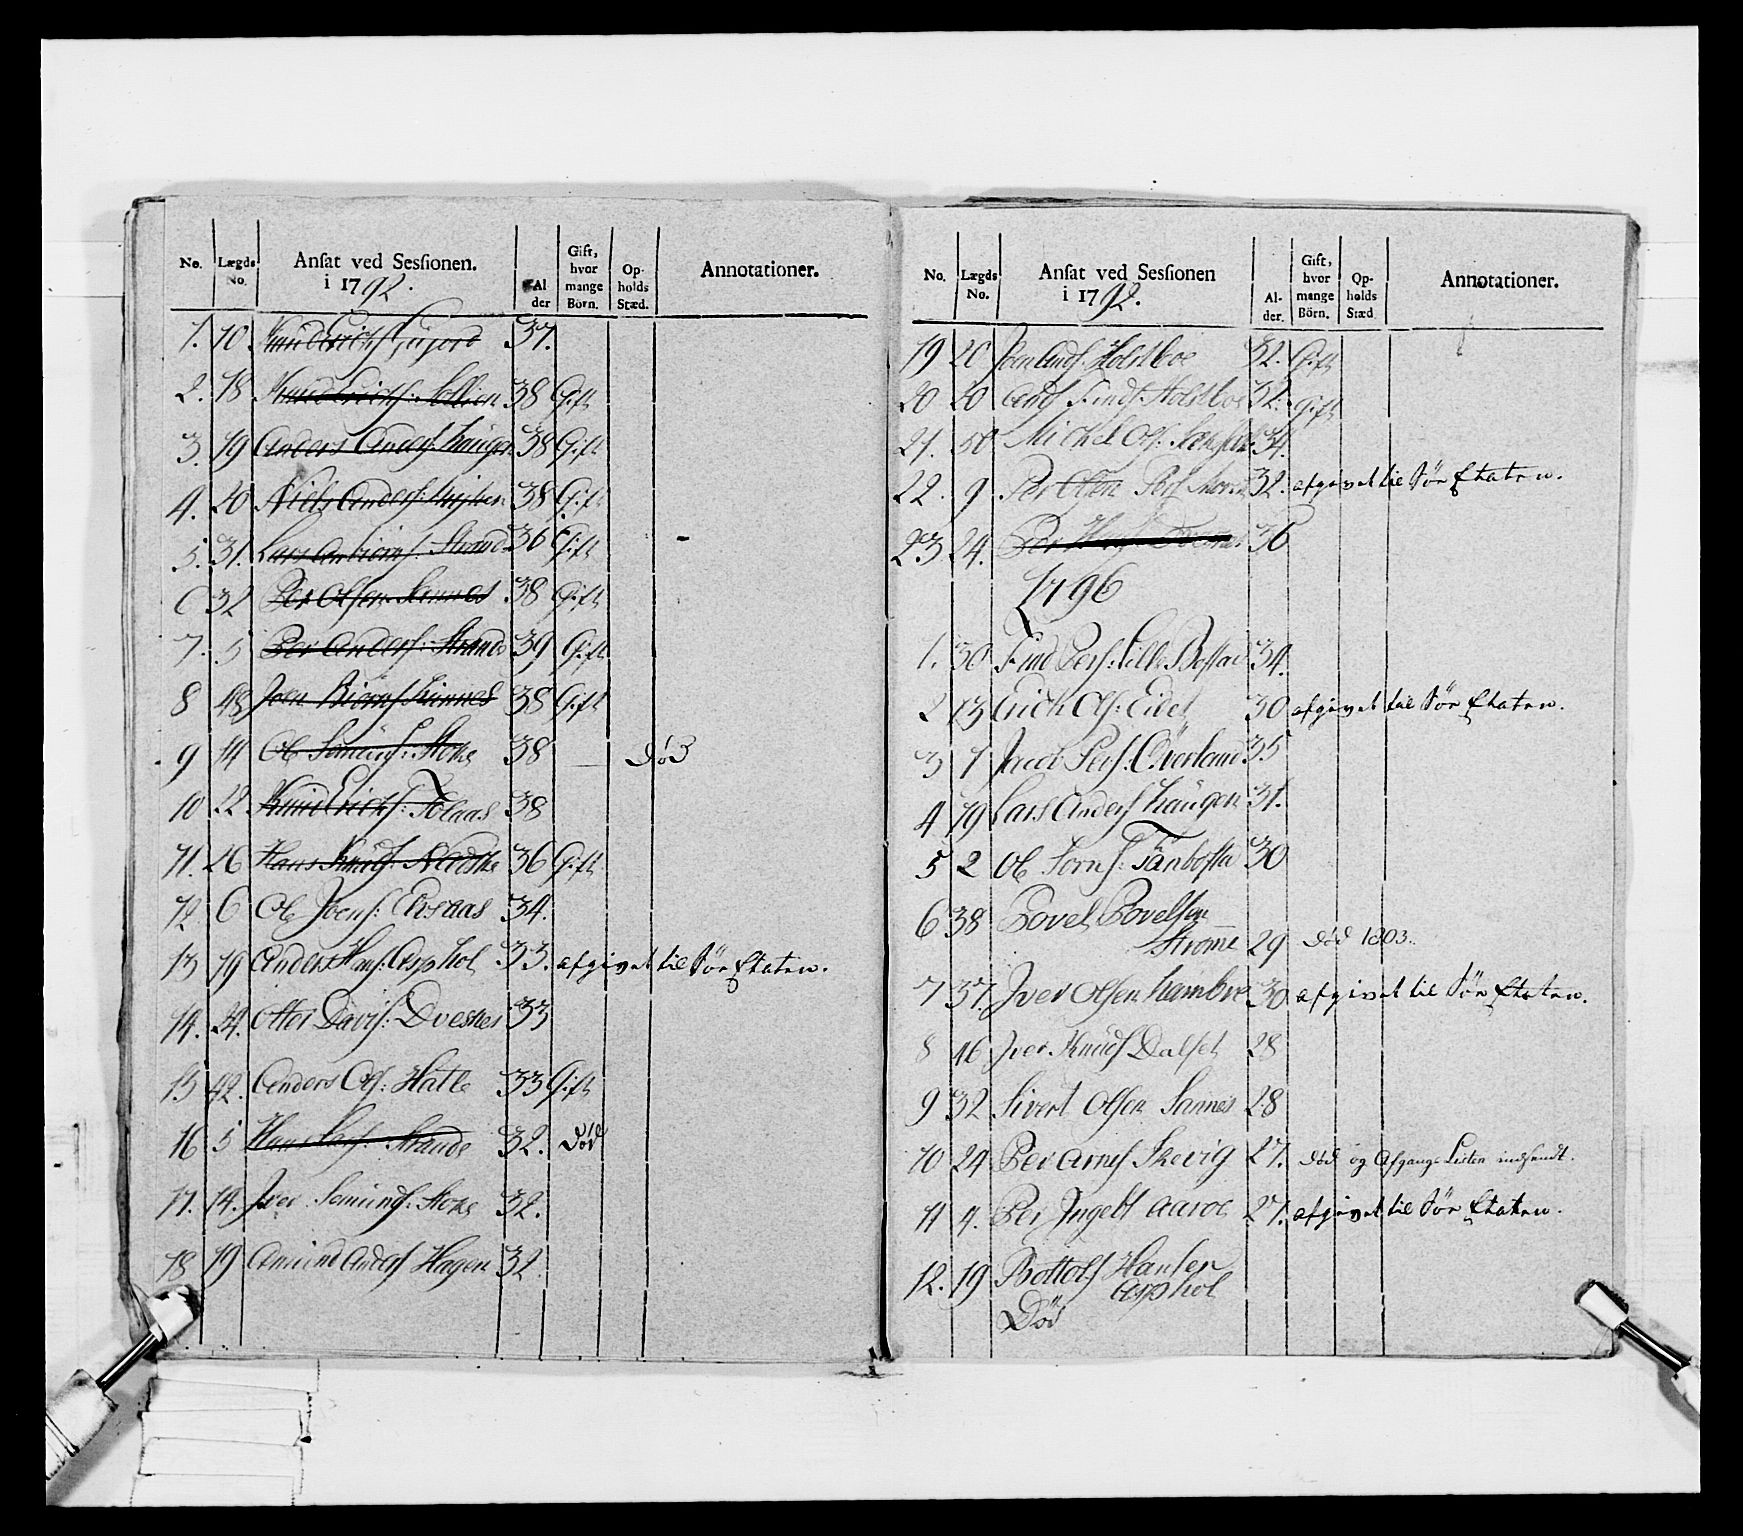 No. Lægds No. Ansat ved Sessionen. i 1792. Alder Gift, hvor mange Börn. Opholds Stæd. Annotationer.
1. 10. Knud Erichs 37.
2. 18 Knud Erichs: Sollien 38 Gift
3. 19 Anders Anders: Haugen 38 Gift
4. 20 Niels Anders: 38 Gift
5. 31. Lars Strand 36 Gift
6 32 Per Olsen Sannes 38 Gift
7. 5 Per Anders: Strande 39 Gift
8 48 Joen Biørns 38 Gift
9 14 Ole Semunds: Stoke 38 Død
10 22 Knud Erichs: 38
11. 26 Hans Knuds: 36 Gift
12 6 Ole Joens: 34.
13 19 Anders Hans: Asphol 33. afgivet til Sör Etaten.
14. 24. Otter Davis: Dvesnes 33
15 42. Anders Ols: Hatle 33 Gift
16 5 Hans Strande 32. Död
17. 14. Iver Semunds: Stoke 32.
18 19 Amund Anders Hagen 32
No. Lægds No. Ansat ved Sessionen i 1792. Alder. Gift, hvor mange Börn. Opholds Stæd Annotationer.
19 20 Joen Ands: Holstboe 32. Gift
20 20 Ands Holstboe 32. Gift
21. 50 Michel Ols: 34.
22. 9 Per Olsen 32. afgivet til Sör Etaten.
23 24. Per Hans 36
1796
1. 30 Find Pers: Lille Bostad 34.
2 13 Erich Ols: Eidet 30 afgivet til Sör Etaten.
3 1 Jacob Pers: Överland 35
4 19 Lars Anders Haugen 31.
5 2 Ole 30
6 38 Povel Povelsen
Strømme 29 död 1803.
7 37. Iver Olsen 30 afgivet til Sör Etaten.
8 46 Iver Knuds Dalset 28
9 32 Sivert Olsen Sannes 28
10 24 Per Arnes Skevig 27. död og Afgangs Listen indsendt.
11 4. Per Ingebt Aaroe 27. afgivet til Sör Etaten.
12. 19 Bottolf Hansen
Asphol
Död